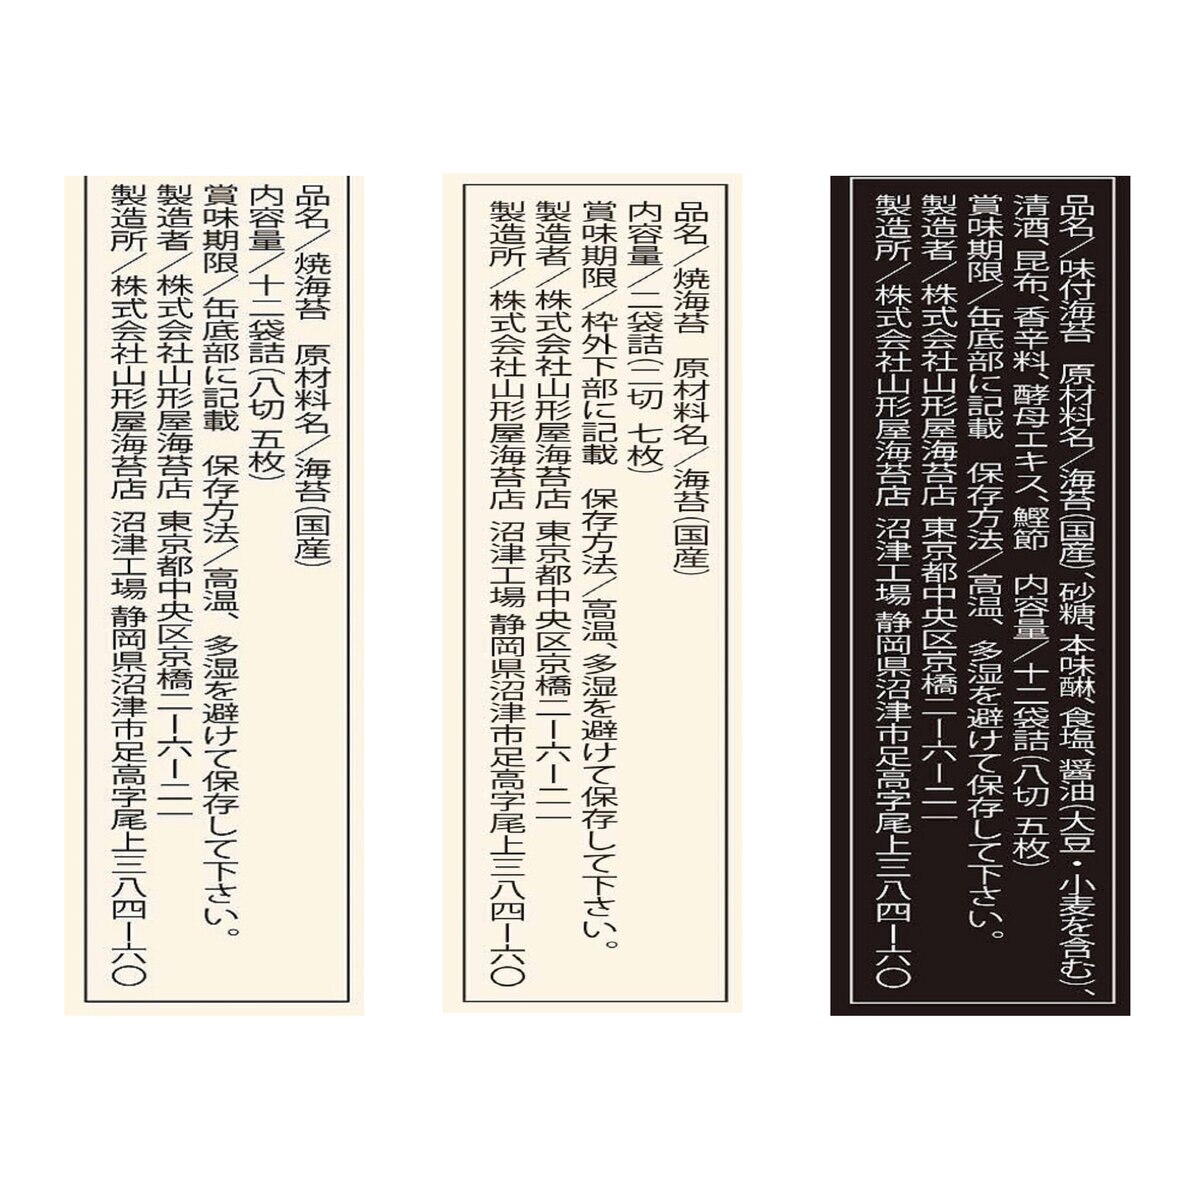 品名／焼海苔　原材料名／海苔(国産)
内容量／十二袋詰(八切 五枚)
賞味期限／缶底部に記載　保存方法／高温、多湿を避けて保存して下さい。
製造者／株式会社山形屋海苔店 東京都中央区京橋二ー六ー二一
製造所／株式会社山形屋海苔店 沼津工場 静岡県沼津市足高字尾上三八四ー六〇
品名／焼海苔　原材料名／海苔(国産)
内容量／二袋詰(二切 七枚)
賞味期限／枠外下部に記載　保存方法／高温、多湿を避けて保存して下さい。
製造者／株式会社山形屋海苔店 東京都中央区京橋二ー六ー二一
製造所／株式会社山形屋海苔店 沼津工場 静岡県沼津市足高字尾上三八四ー六〇
品名／味付海苔　原材料名／海苔(国産)、砂糖、本味醂、食塩、醤油(大豆・小麦を含む)、
清酒、昆布、香辛料、酵母エキス、鰹節　内容量／十二袋詰(八切 五枚)
賞味期限／缶底部に記載　保存方法／高温、多湿を避けて保存して下さい。
製造者／株式会社山形屋海苔店 東京都中央区京橋二ー六ー二一
製造所／株式会社山形屋海苔店 沼津工場 静岡県沼津市足高字尾上三八四ー六〇